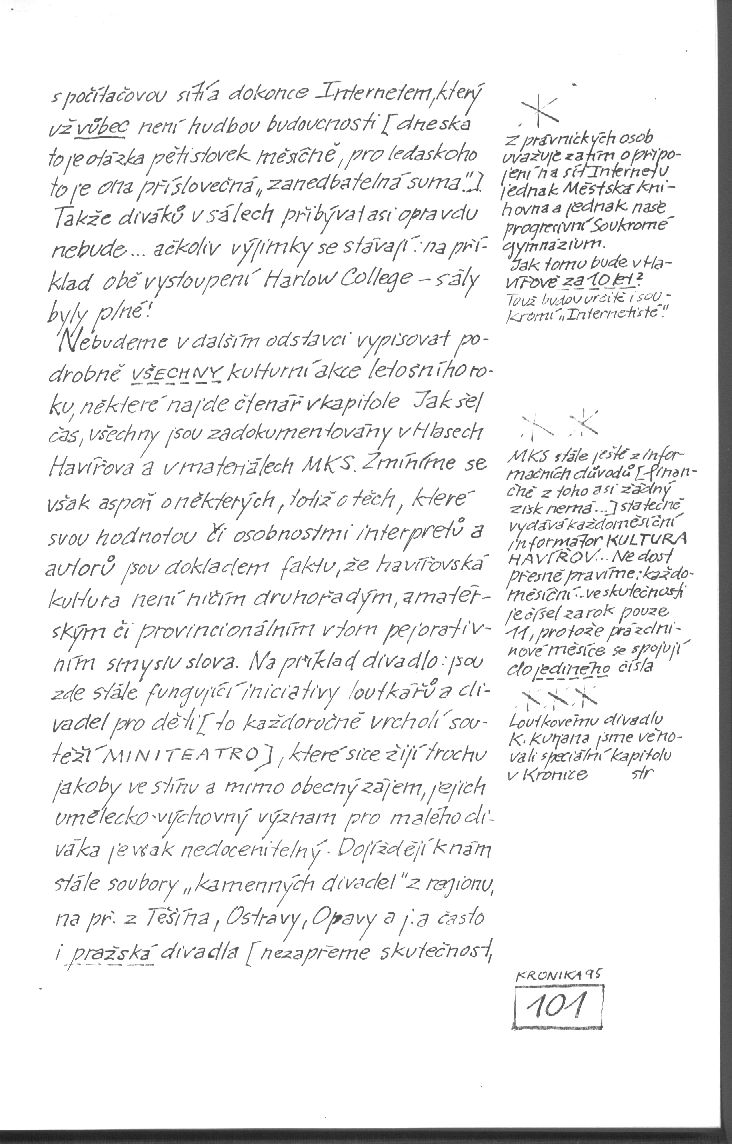 s počítačovou sítí a dokonce Internetem, který
už vůbec není hudbou budoucnosti [dneska
to je otázka pětistovek měsíčně, pro ledaskoho
to je ona příslovečná „zanedbatelná suma"].
Takže diváků v sálech přibývat asi opravdu
nebude... ačkoliv výjimky se stávají: na pří-
klad obě vystoupení Harlow College – sály
byly plné!
Nebudeme v dalším odstavci vypisovat po-
drobně VŠECHNY kulturní akce letošního ro-
ku, některé najde čtenář v kapitole Jak šel
čas, všechny jsou zadokumentovány v Hlasech
Havířova a v materiálech MKS. Zmíníme se
však aspoň o některých, totiž o těch, které
svou hodnotou či osobnostmi interpretů a
autorů jsou dokladem faktu, že havířovská
kultura není ničím druhořadým, amatér-
ským či provincionálním v tom pejorativ-
ním smyslu slova. Na příklad divadlo: jsou
zde stále fungující iniciativy loutkářů a di-
vadel pro děti [to každoročně vrcholí sou-
těží MINITEATRO], které sice žijí trochu
jakoby ve stínu a mimo obecný zájem, jejich
umělecko-výchovný význam pro malého di-
váka je však nedocenitelný. Dojíždějí k nám
stále soubory „kamenných divadel" z regionu,
na př. z Těšína, Ostravy, Opavy a j. a často
i pražská divadla [nezapřeme skutečnost,
Z právnických osob
uvažuje zatím o připo-
jení na síť Internetu
jednak Městská kni-
hovna a jednak naše
progresivní Soukromé
gymnázium.
Jak tomu bude v Ha-
vířově za 10 let?
Touž budou určitě i sou-
kromí „Internetisté"
MKS stále ještě z infor-
mačních důvodů [finan-
čně z toho asi žádný
zisk nemá...] statečně
vydává každoměsíční
informátor KULTURA
HAVÍŘOV... Ne dost
přesně pravíme: každo-
měsíční.. ve skutečnosti
je čísel za rok pouze
11, protože prázdni-
nové měsíce se spojují
do jediného čísla
Loutkovému divadlu
K. Kuhana jsme věno-
vali speciální kapitolu
v Kronice str
KRONIKA 95
101